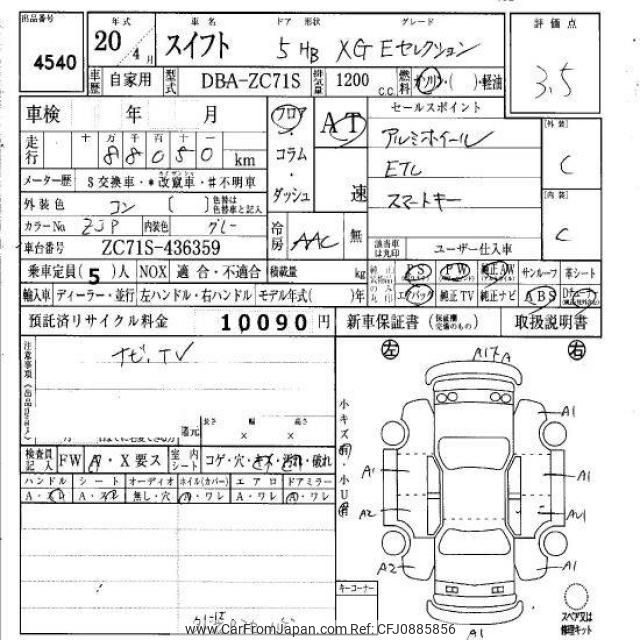 出品番号 年式 車名 ドア 形状 グレード 評価点
4540 20 4月 スイフト 5 HB XG Eセレクション 3.5
車歴 自家用 型式 DBA-ZC71S 排気量 1200 c.c. 燃料 ガソリン・( )・軽油
車検 年 月 フロア AT セールスポイント [外装]
走行 十 万 千 百 十 一 コラム アルミホイール C
88050 km ・ ETC
メーター歴 $ 交換車・*改竄車・#不明車 ダッシュ 速 スマートキー [内装]
外装色 コン ( ) 色替は色替車と記入 C
カラーNo ZJP 内装色 グレー 冷房 AAC 無 該当車は丸印 ユーザー仕入車
車台番号 ZC71S-436359
乗車定員(5)人 NOX 適合・不適合 積載量 kg PS PW 純正AW サンルーフ 革シート
輸入車 ディーラー・並行 左ハンドル・右ハンドル モデル年式( )年 エアバック 純正TV 純正ナビ ABS
預託済リサイクル料金 10090 円 新車保証書 (保証欄交換のもの) 取扱説明書
注意事項 ナビ、TV 左 A17A 右
長さ 幅 高さ 小キズ A1
還元 × ×
検査員記入 FW A・X要ス 室内シート コゲ・穴・キズ・汚れ・破れ ・小U A1 A1
ハンドル シート オーディオ ホイル(カバー) エアロ ドアミラー
A・スレ A・スレ 無し・穴 A・ワレ A・ワレ A・ワレ A2 AU1
A2 A1
キーコーナー
A1 スペア又は修理キット
www.CarFromJapan.com Ref: CFJ0885856